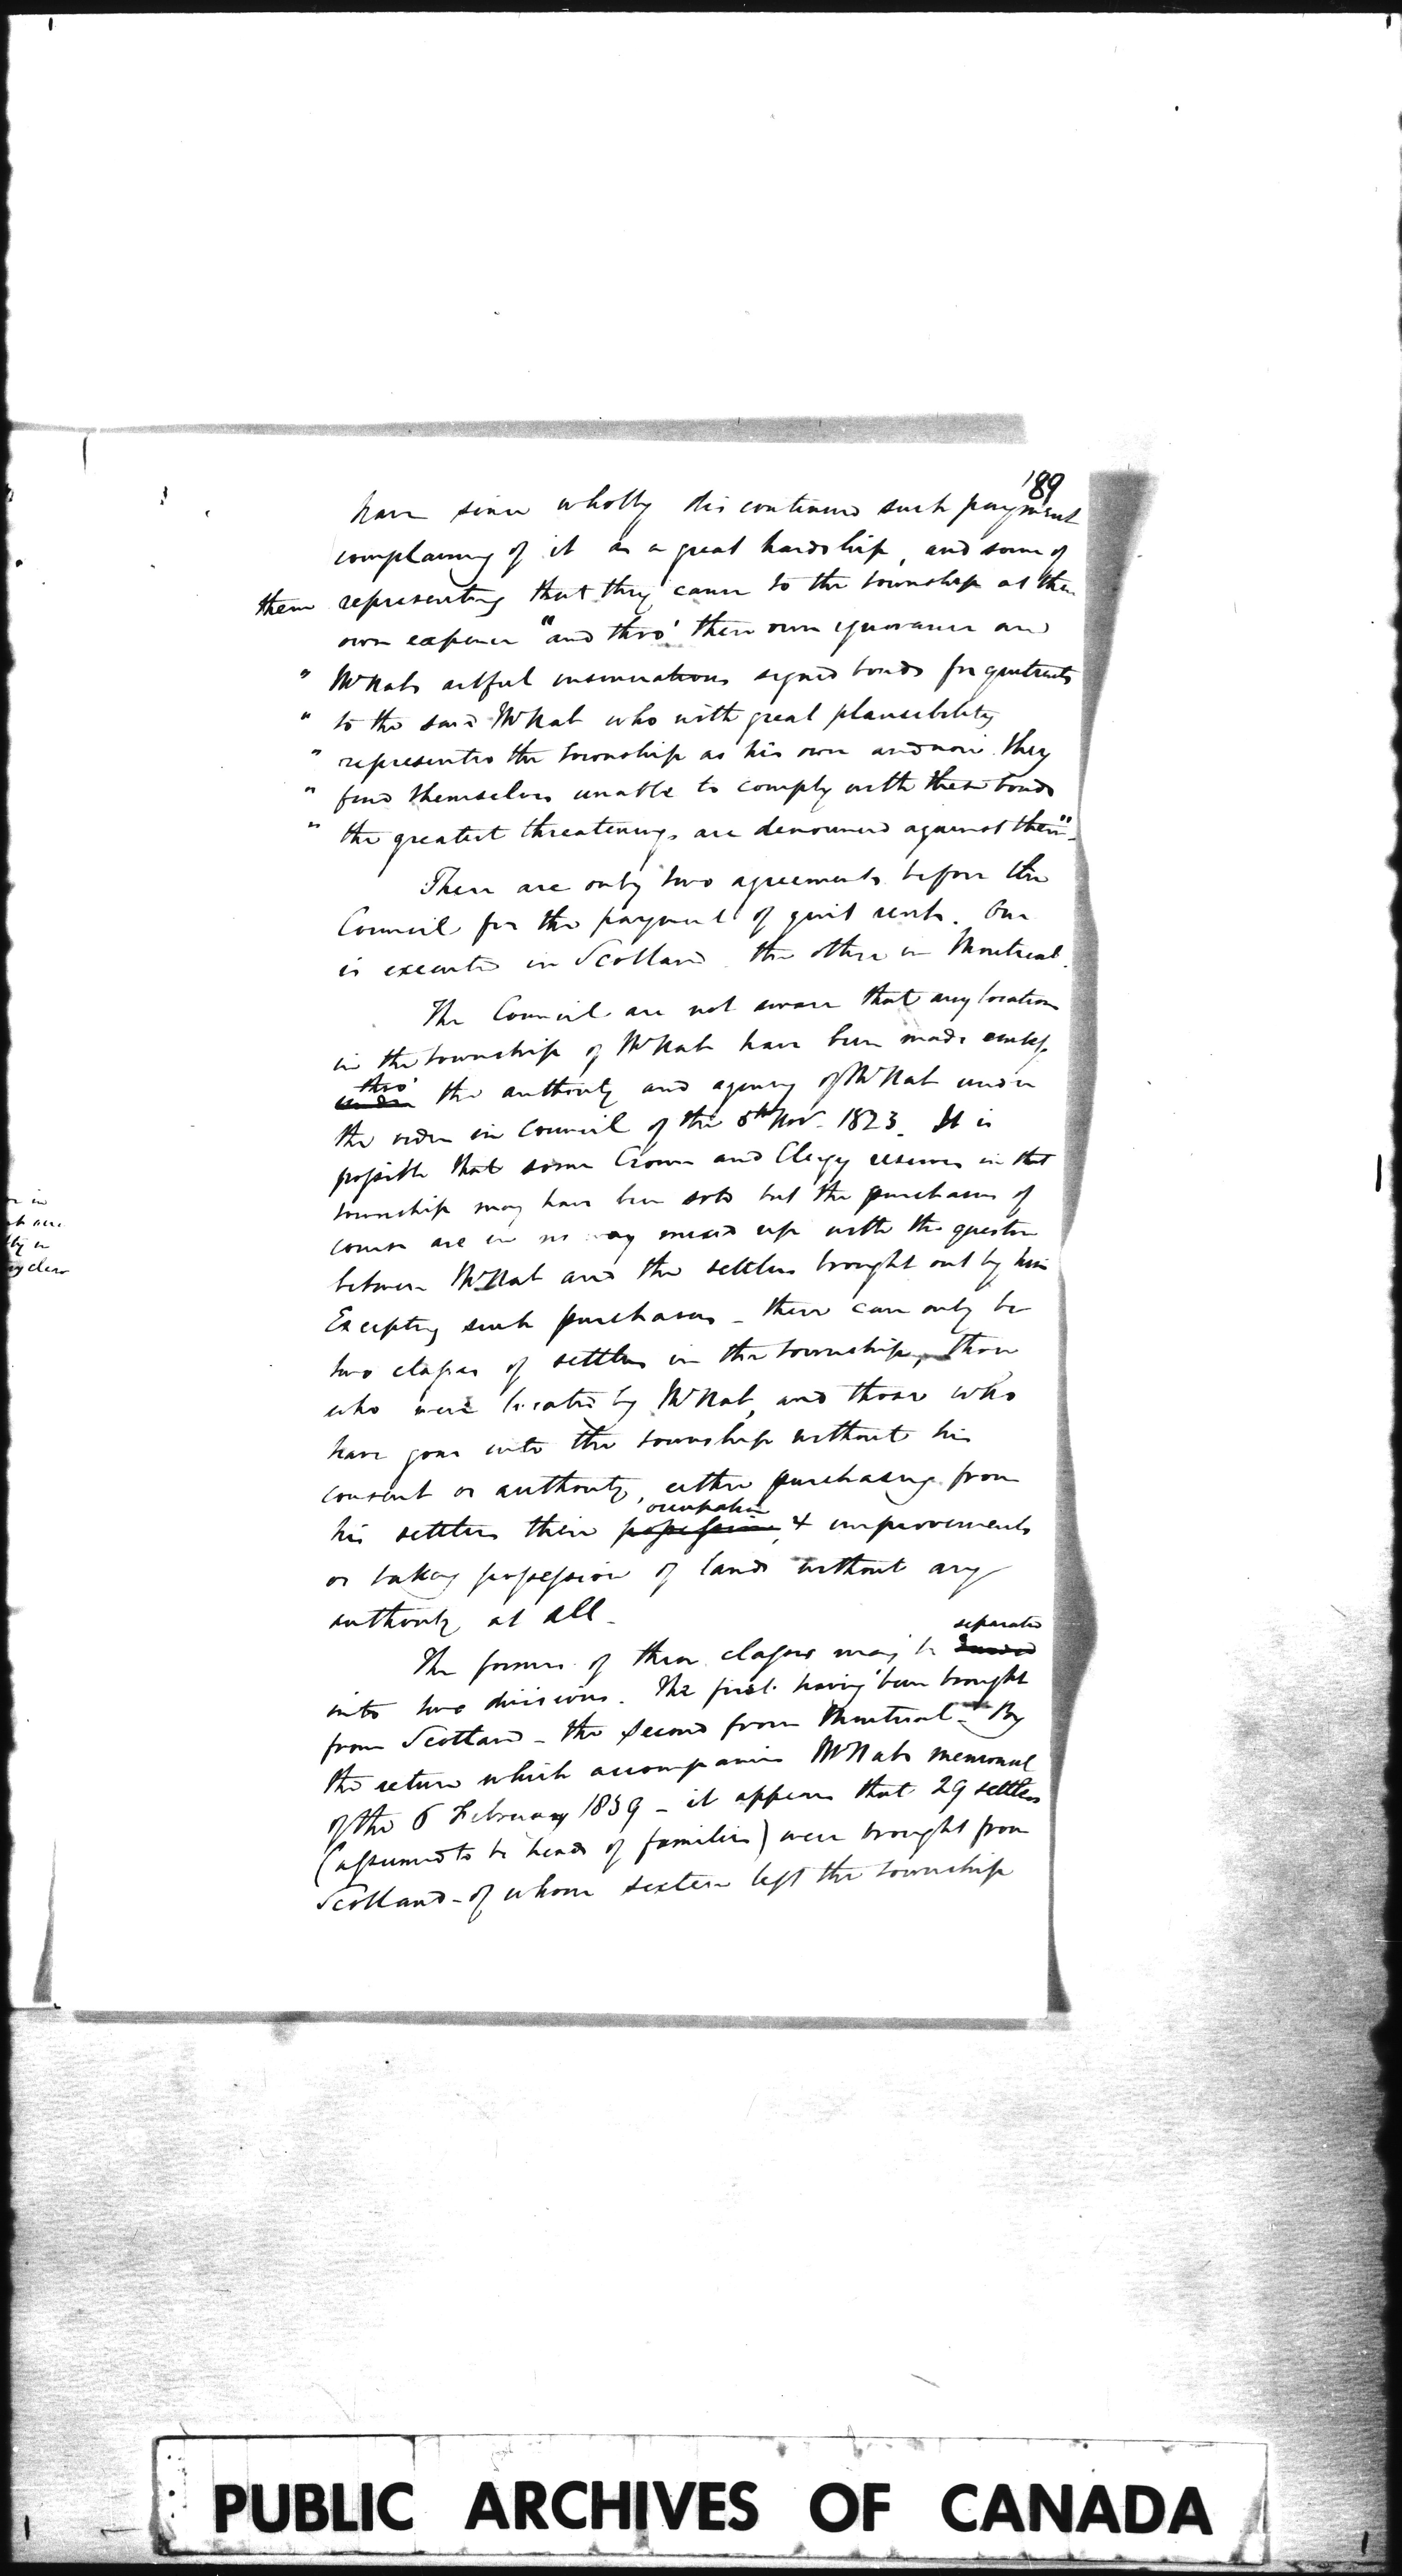 189
have since wholly discontinued such payment
complaining of it as a great hardship, and some of
them representing that they came to the township at their
own expence "and thro' their own ignorance and
" McNabs artful insinuations signed bonds for quitrents
" to the said McNab who with great plausibility
" represented the township as his own and now they
" find themselves unable to comply with these bonds
" the greatest threatenings are denounced against them".
There are only two agreements before the
Council for the payment of quit rents. One
is executed in Scotland the other in Montreal.
The Council are not aware that any locations
in the township of McNab have been made except
thro'
under the authority and agency of McNab under
the order in Council of the 5th Nov. 1823. It is
possible that some Crown and Clergy reserves in that
township may have been sold but the purchasers of
course are in no way mixed up with the question
between McNab and the settlers brought out by him
Excepting such purchasers - there can only be
two classes of settlers in the township, those
who were located by McNab, and those who
have gone into the township without his
consent or authority, either purchasing from
occupation
his settlers their possession, & improvements
or taking possession of lands without any
authority at all -
separated
The former of these classes may be
into two divisions. The first having been brought
from Scotland - the second from Montreal - By
the return which accompanies McNabs memorial
of the 6 February 1839 - it appears that 29 settlers
(assumed to be heads of families) were brought from
Scotland - of whom sixteen left the township
PUBLIC ARCHIVES OF CANADA